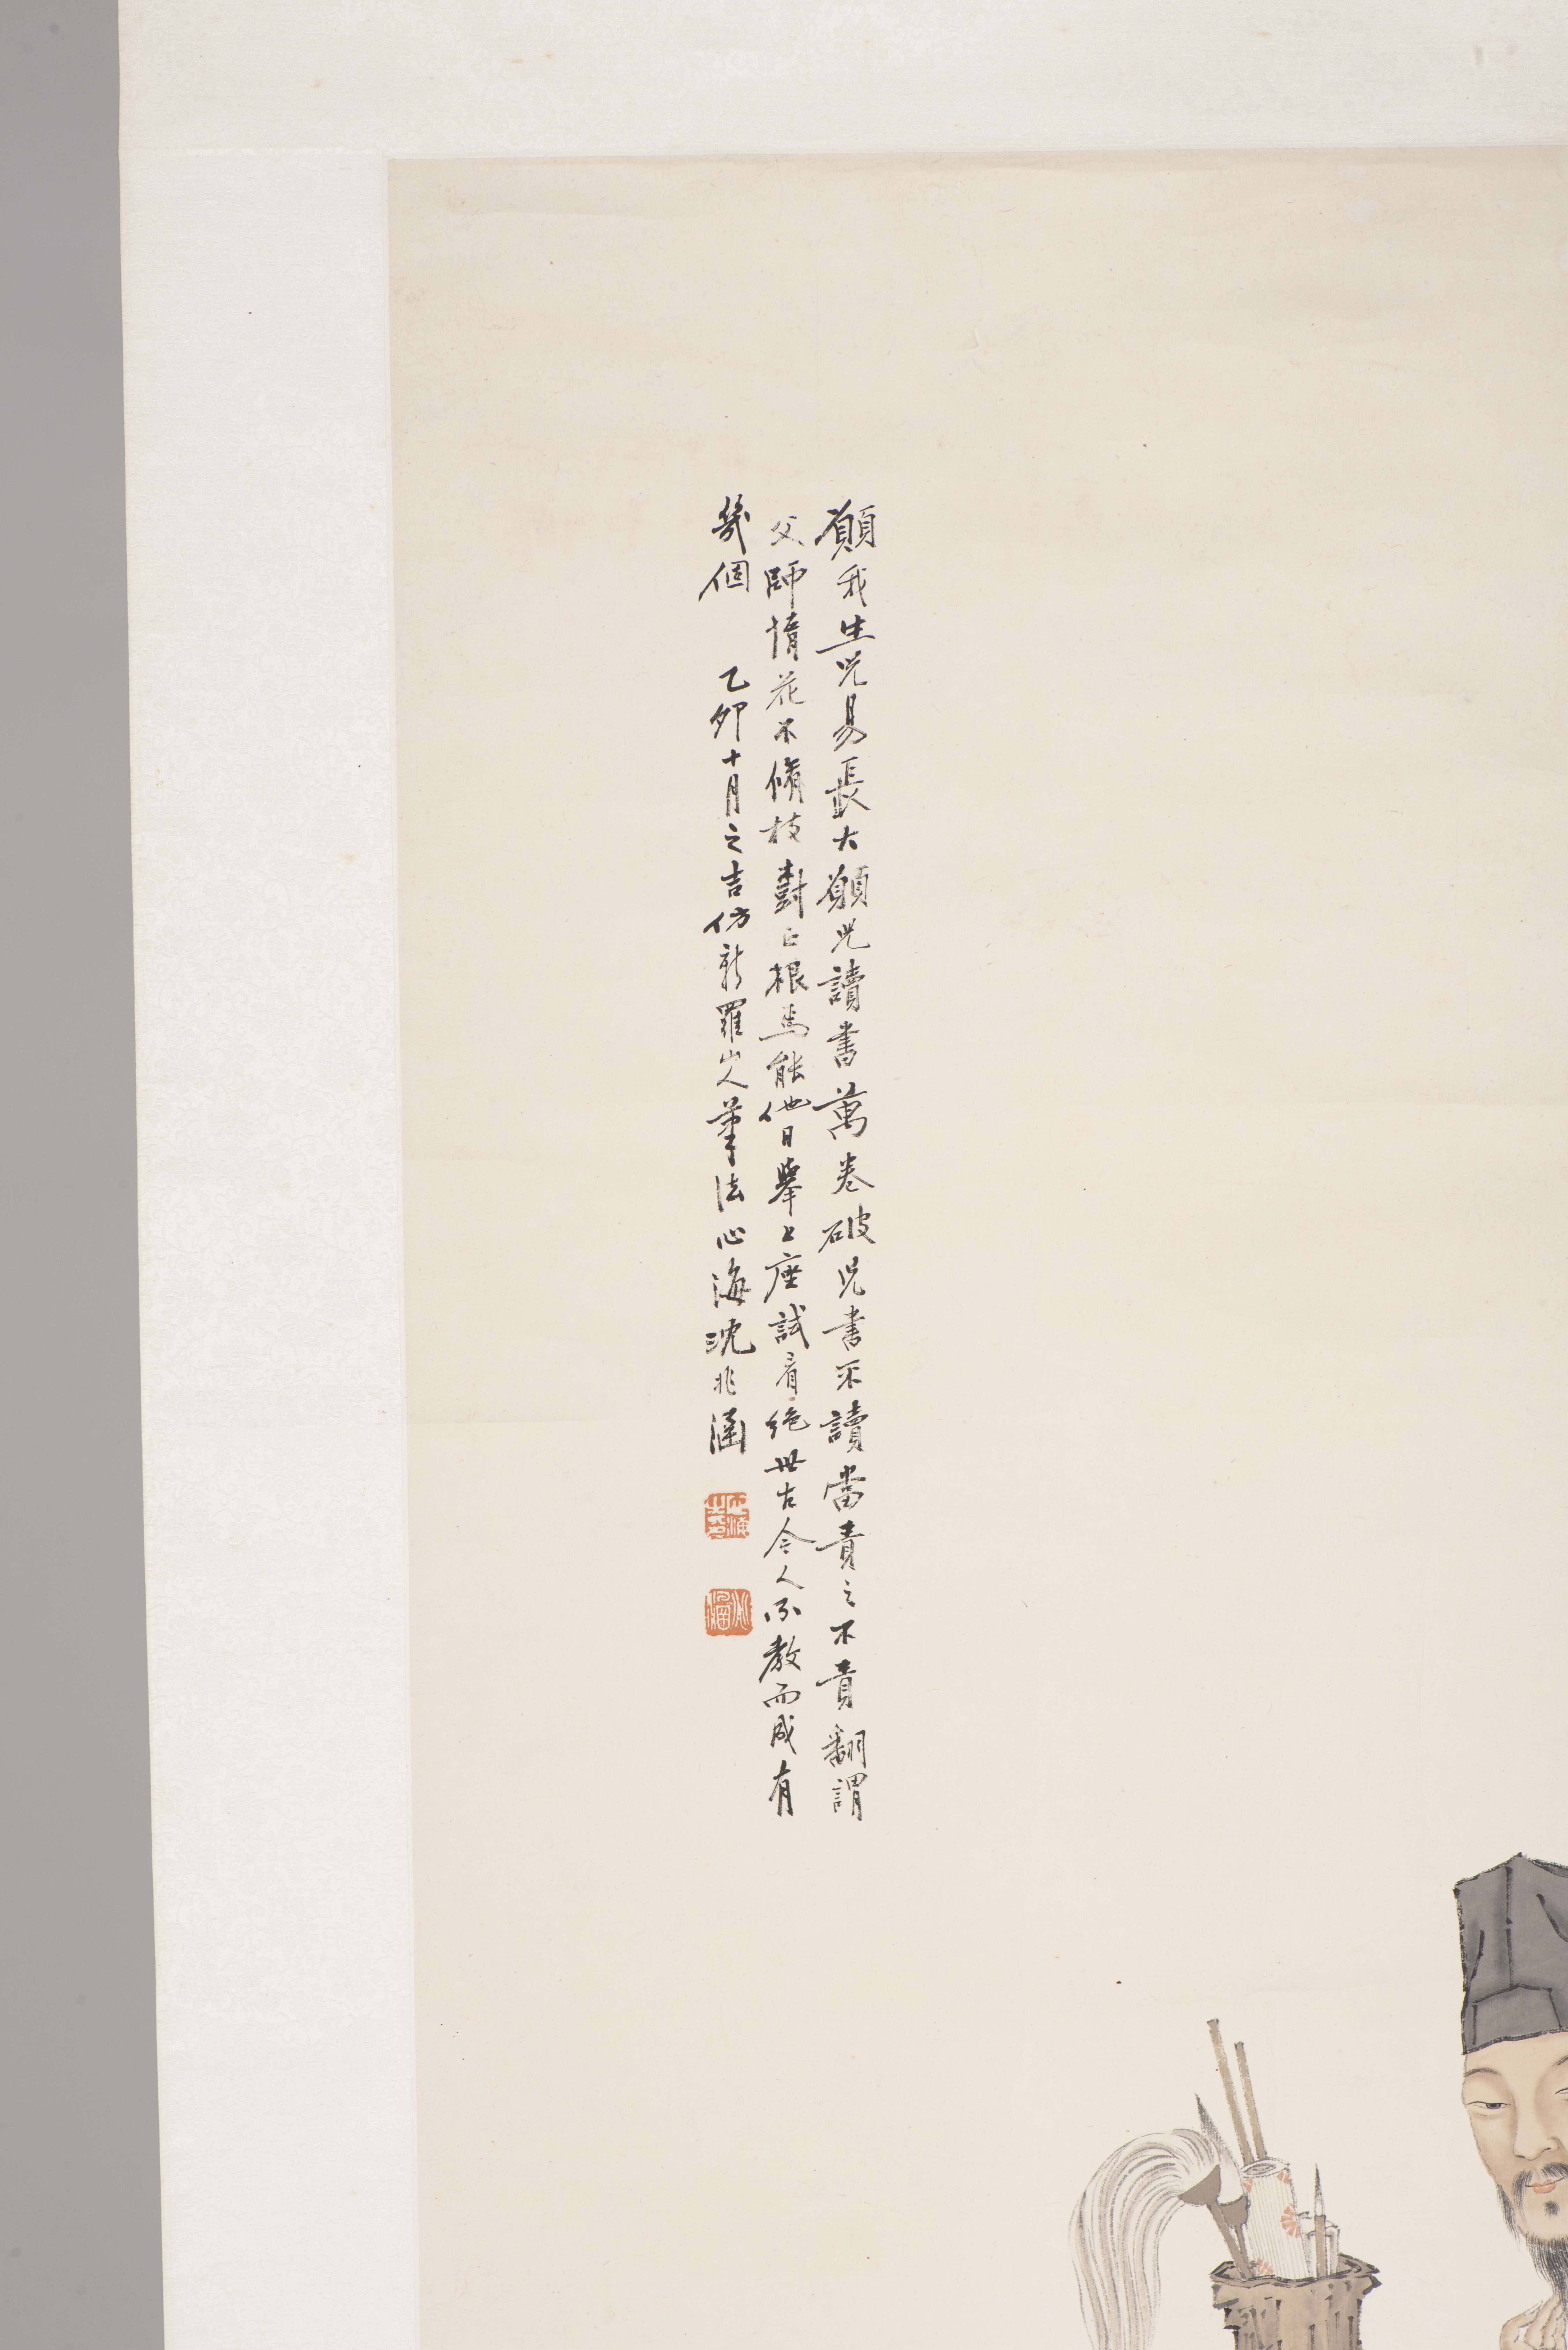 願我生児易長大願児讀書萬卷破児書不讀當責之不責翻謂
父師惰花不脩枝樹正根焉能他日舉上座試看絶世古今人不教而成有
幾個　乙卯十月之吉仿新羅山人筆法心海沈兆涵